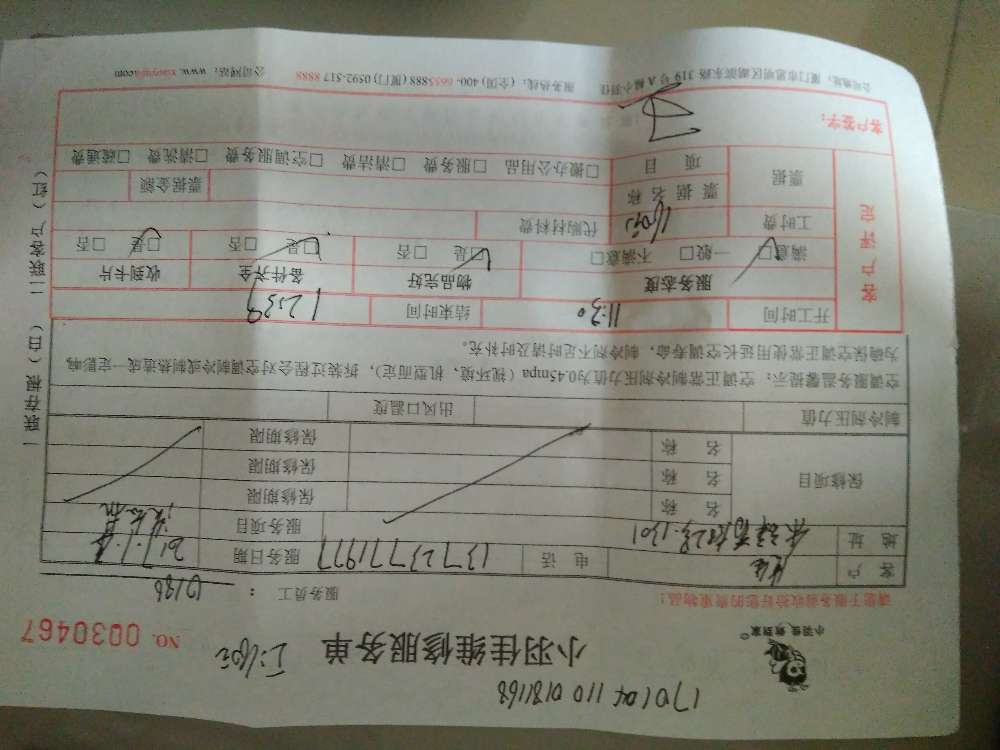 小羽佳维修服务单
NO. 0030467
请您于服务前收拾好您的贵重物品！
服务员工：
客户
电话 13723771977
服务日期
地址
服务项目
保修项目
名称
保修期限
名称
保修期限
名称
保修期限
制冷剂压力值
出风口温度
空调服务温馨提示：空调正常制冷剂压力值为0.45mpa（视环境、机型而定），拆装过程会对空调制冷或制热造成一定影响，
为确保空调正常使用延长空调寿命，制冷剂不足时请及时补充。
一联存根（白） 二联客户（红）
客户评定
开工时间 11:30
结束时间
服务态度
物品完好
备件齐全
收到卡片
满意□ 一般□ 不满意□
□是 □否
□是 □否
□是 □否
工时费
代购材料费
票据
票据名称
票据金额
项目
□搬办公用品 □服务费 □清洁费 □空调服务费 □清洗费 □疏通费
客户签字：
公司地址：厦门市思明区湖滨东路319号A幢小羽佳
服务热线：（全国）400-6655888（厦门）0592-517 8888
公司网站：www.xiaoyujia.com